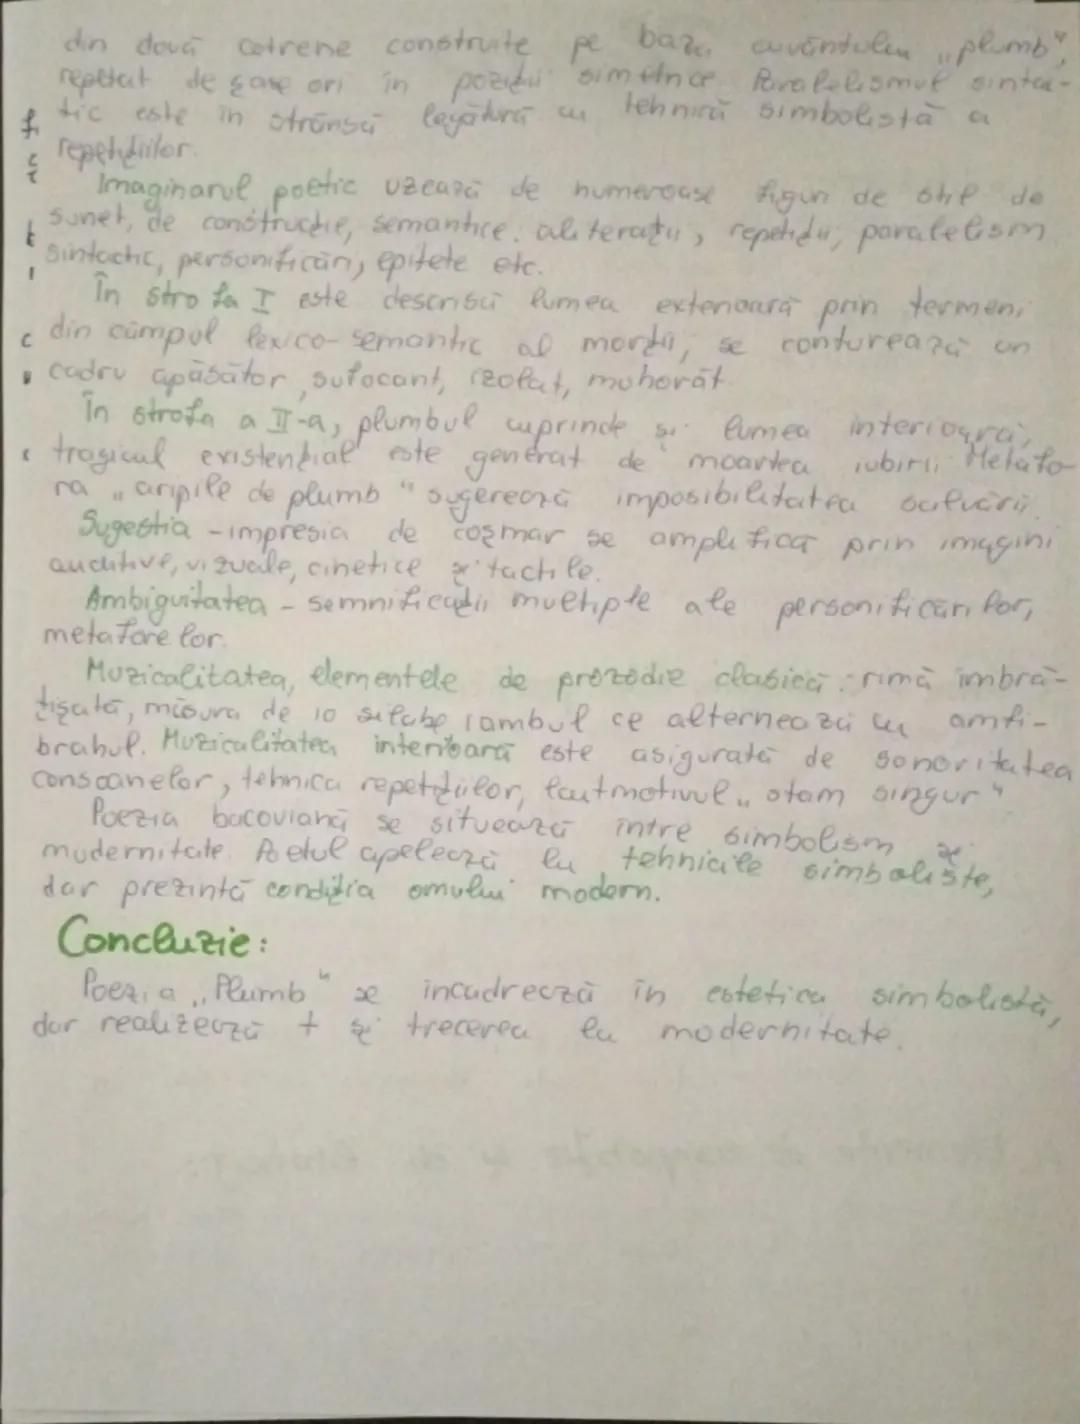 din două catrene construite pe baza cuvântului „plumb",
repetat de șase ori în poziții simetrice. Paralelismul sintac-
tic este în strânsă legătură cu tehnică simbolistă a
repetițiilor.
Imaginarul poetic uzează de numeroase figuri de stil de
sunet, de construcție, semantice: aliterații, repetiții, paralelism
sintactic, personificări, epitete etc.
În strofa I este descrisă lumea exterioară prin termeni
din câmpul lexico-semantic al morții, se conturează un
cadru apăsător, sufocant, izolat, mohorât.
În strofa a II-a, plumbul cuprinde și lumea interioară,
tragicul existențial este generat de moartea iubirii. Metafo-
ra „aripile de plumb" sugerează imposibilitatea salvării.
Sugestia - impresia de coșmar se amplifică prin imagini
auditive, vizuale, cinetice și tactile.
Ambiguitatea - semnificații multiple ale personificărilor,
metaforelor.
Muzicalitatea, elementele de prozodie clasică: rimă îmbră-
țișată, măsura de 10 silabe, iambul ce alternează cu amfi-
brahul. Muzicalitatea interioară este asigurată de sonoritatea
consoanelor, tehnica repetițiilor, laitmotivul „stam singur"
Poezia bacoviană se situează între simbolism și
modernitate. Poetul apelează la tehnicile simboliste,
dar prezintă condiția omului modern.
Concluzie:
Poezia „Plumb" se încadrează în estetica simbolistă,
dar realizează + și trecerea la modernitate.